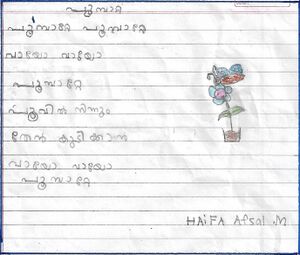 പൂമ്പാറ്റ
പൂമ്പാറ്റേ പൂമ്പാറ്റേ
വായോ വായോ
പൂമ്പാറ്റേ
പൂവിൽ നിന്നും
തേൻ കുടിക്കാൻ
വായോ വായോ
പൂമ്പാറ്റേ
HAiFA Afsal .M